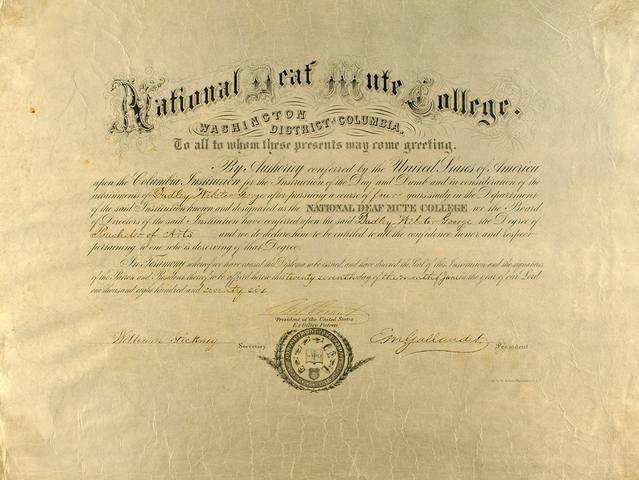 National Deaf Mute College.
WASHINGTON
DISTRICT OF COLUMBIA.
To all to whom these presents may come greeting.
By Authority conferred by the United States of America
upon the Columbia Institution for the Instruction of the Deaf and Dumb and in consideration of the
attainments of Dudley Webster George after pursuing a course of four years study in the Department
of the said Institution known and designated as the NATIONAL DEAF MUTE COLLEGE we the Board
of Directors of the said Institution have conferred upon the said Dudley Webster George the Degree of
Bachelor of Arts and we do declare him to be entitled to all the confidence honor and respect
pertaining to one who is deserving of that Degree.
In Testimony whereof we have caused this Diploma to be issued and have caused the Seal of this Institution and the signatures
of the Patron and President thereof to be affixed hereto this twenty seventh day of the month of June in the year of our Lord
one thousand eight hundred and seventy six
President of the United States
Ex Officio Patron
William Stickney Secretary E M Gallaudet President